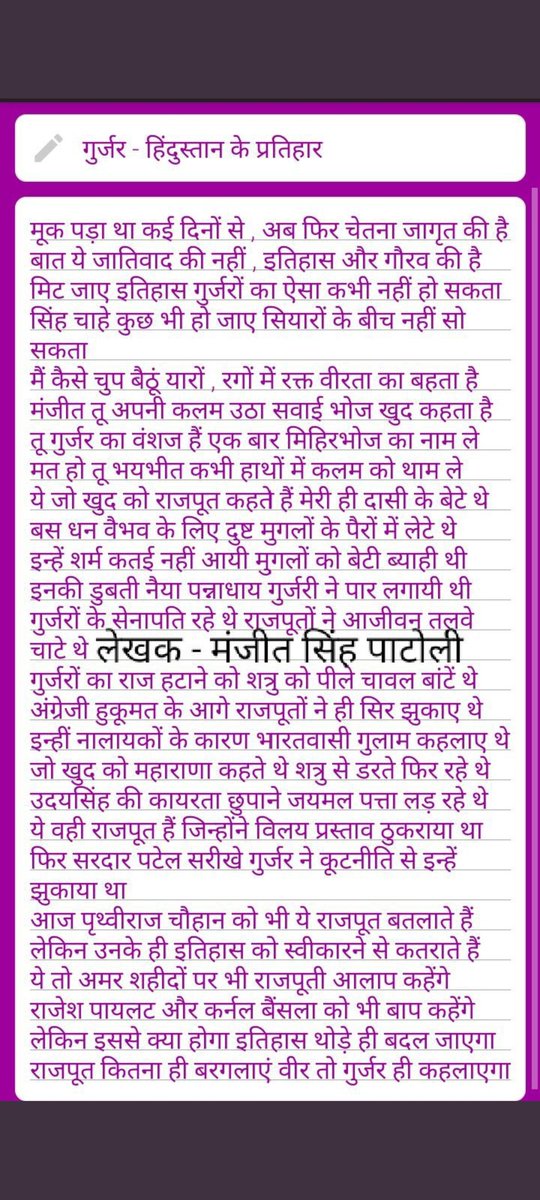 गुर्जर - हिंदुस्तान के प्रतिहार
मूक पड़ा था कई दिनों से , अब फिर चेतना जागृत की है
बात ये जातिवाद की नहीं , इतिहास और गौरव की है
मिट जाए इतिहास गुर्जरों का ऐसा कभी नहीं हो सकता
सिंह चाहे कुछ भी हो जाए सियारों के बीच नहीं सो
सकता
मैं कैसे चुप बैठूं यारों , रगों में रक्त वीरता का बहता है
मंजीत तू अपनी कलम उठा सवाई भोज खुद कहता है
तू गुर्जर का वंशज हैं एक बार मिहिरभोज का नाम ले
मत हो तू भयभीत कभी हाथों में कलम को थाम ले
ये जो खुद को राजपूत कहते हैं मेरी ही दासी के बेटे थे
बस धन वैभव के लिए दुष्ट मुगलों के पैरों में लेटे थे
इन्हें शर्म कतई नहीं आयी मुगलों को बेटी ब्याही थी
इनकी डुबती नैया पन्नाधाय गुर्जरी ने पार लगायी थी
गुर्जरों के सेनापति रहे थे राजपूतों ने आजीवन तलवे
चाटे थे
लेखक - मंजीत सिंह पाटोली
गुर्जरों का राज हटाने को शत्रु को पीले चावल बांटें थे
अंग्रेजी हुकूमत के आगे राजपूतों ने ही सिर झुकाए थे
इन्हीं नालायकों के कारण भारतवासी गुलाम कहलाए थे
जो खुद को महाराणा कहते थे शत्रु से डरते फिर रहे थे
उदयसिंह की कायरता छुपाने जयमल पत्ता लड़ रहे थे
ये वही राजपूत हैं जिन्होंने विलय प्रस्ताव ठुकराया था
फिर सरदार पटेल सरीखे गुर्जर ने कूटनीति से इन्हें
झुकाया था
आज पृथ्वीराज चौहान को भी ये राजपूत बतलाते हैं
लेकिन उनके ही इतिहास को स्वीकारने से कतराते हैं
ये तो अमर शहीदों पर भी राजपूती आलाप कहेंगे
राजेश पायलट और कर्नल बैंसला को भी बाप कहेंगे
लेकिन इससे क्या होगा इतिहास थोड़े ही बदल जाएगा
राजपूत कितना ही बरगलाएं वीर तो गुर्जर ही कहलाएगा